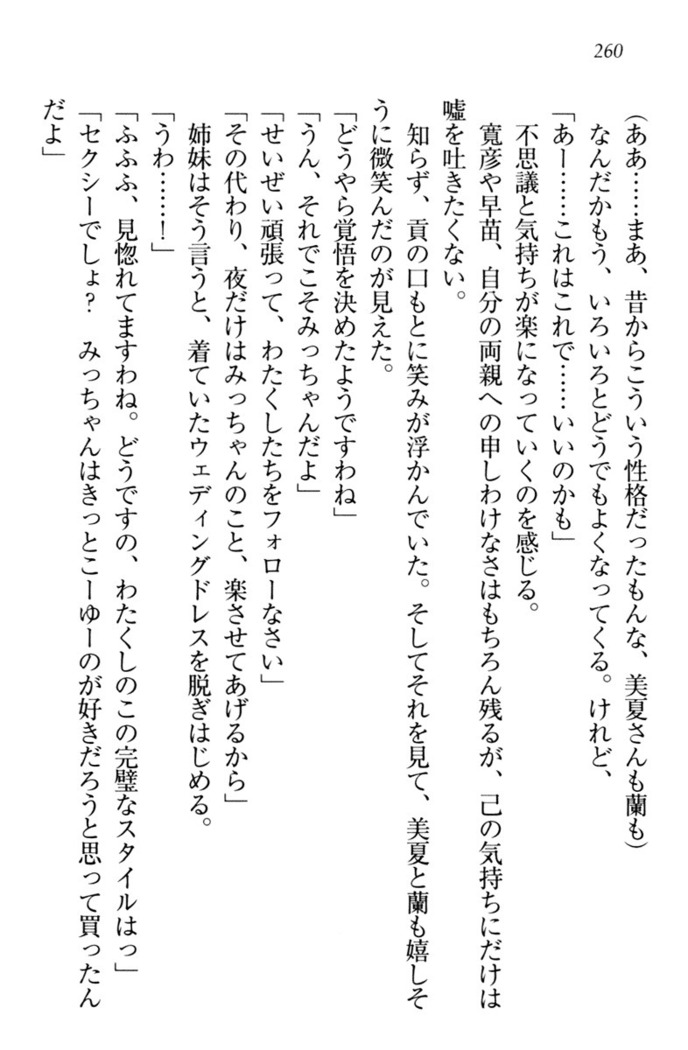 260
(ああ……まあ、昔からこういう性格だったもんな、美夏さんも蘭も)
なんだかもう、いろいろとどうでもよくなってくる。けれど、
「あー……これはこれで……いいのかも」
不思議と気持ちが楽になっていくのを感じる。
寛彦や早苗、自分の両親への申しわけなさはもちろん残るが、己の気持ちにだけは
嘘を吐きたくない。
知らず、貢の口もとに笑みが浮かんでいた。そしてそれを見て、美夏と蘭も嬉しそ
うに微笑んだのが見えた。
「どうやら覚悟を決めたようですわね」
「うん、それでこそみっちゃんだよ」
「せいぜい頑張って、わたくしたちをフォローなさい」
「その代わり、夜だけはみっちゃんのこと、楽させてあげるから」
姉妹はそう言うと、着ていたウェディングドレスを脱ぎはじめる。
「うわ……！」
「ふふふ、見惚れてますわね。どうですの、わたくしのこの完璧なスタイルはっ」
「セクシーでしょ？　みっちゃんはきっとこーゆーのが好きだろうと思って買ったん
だよ」